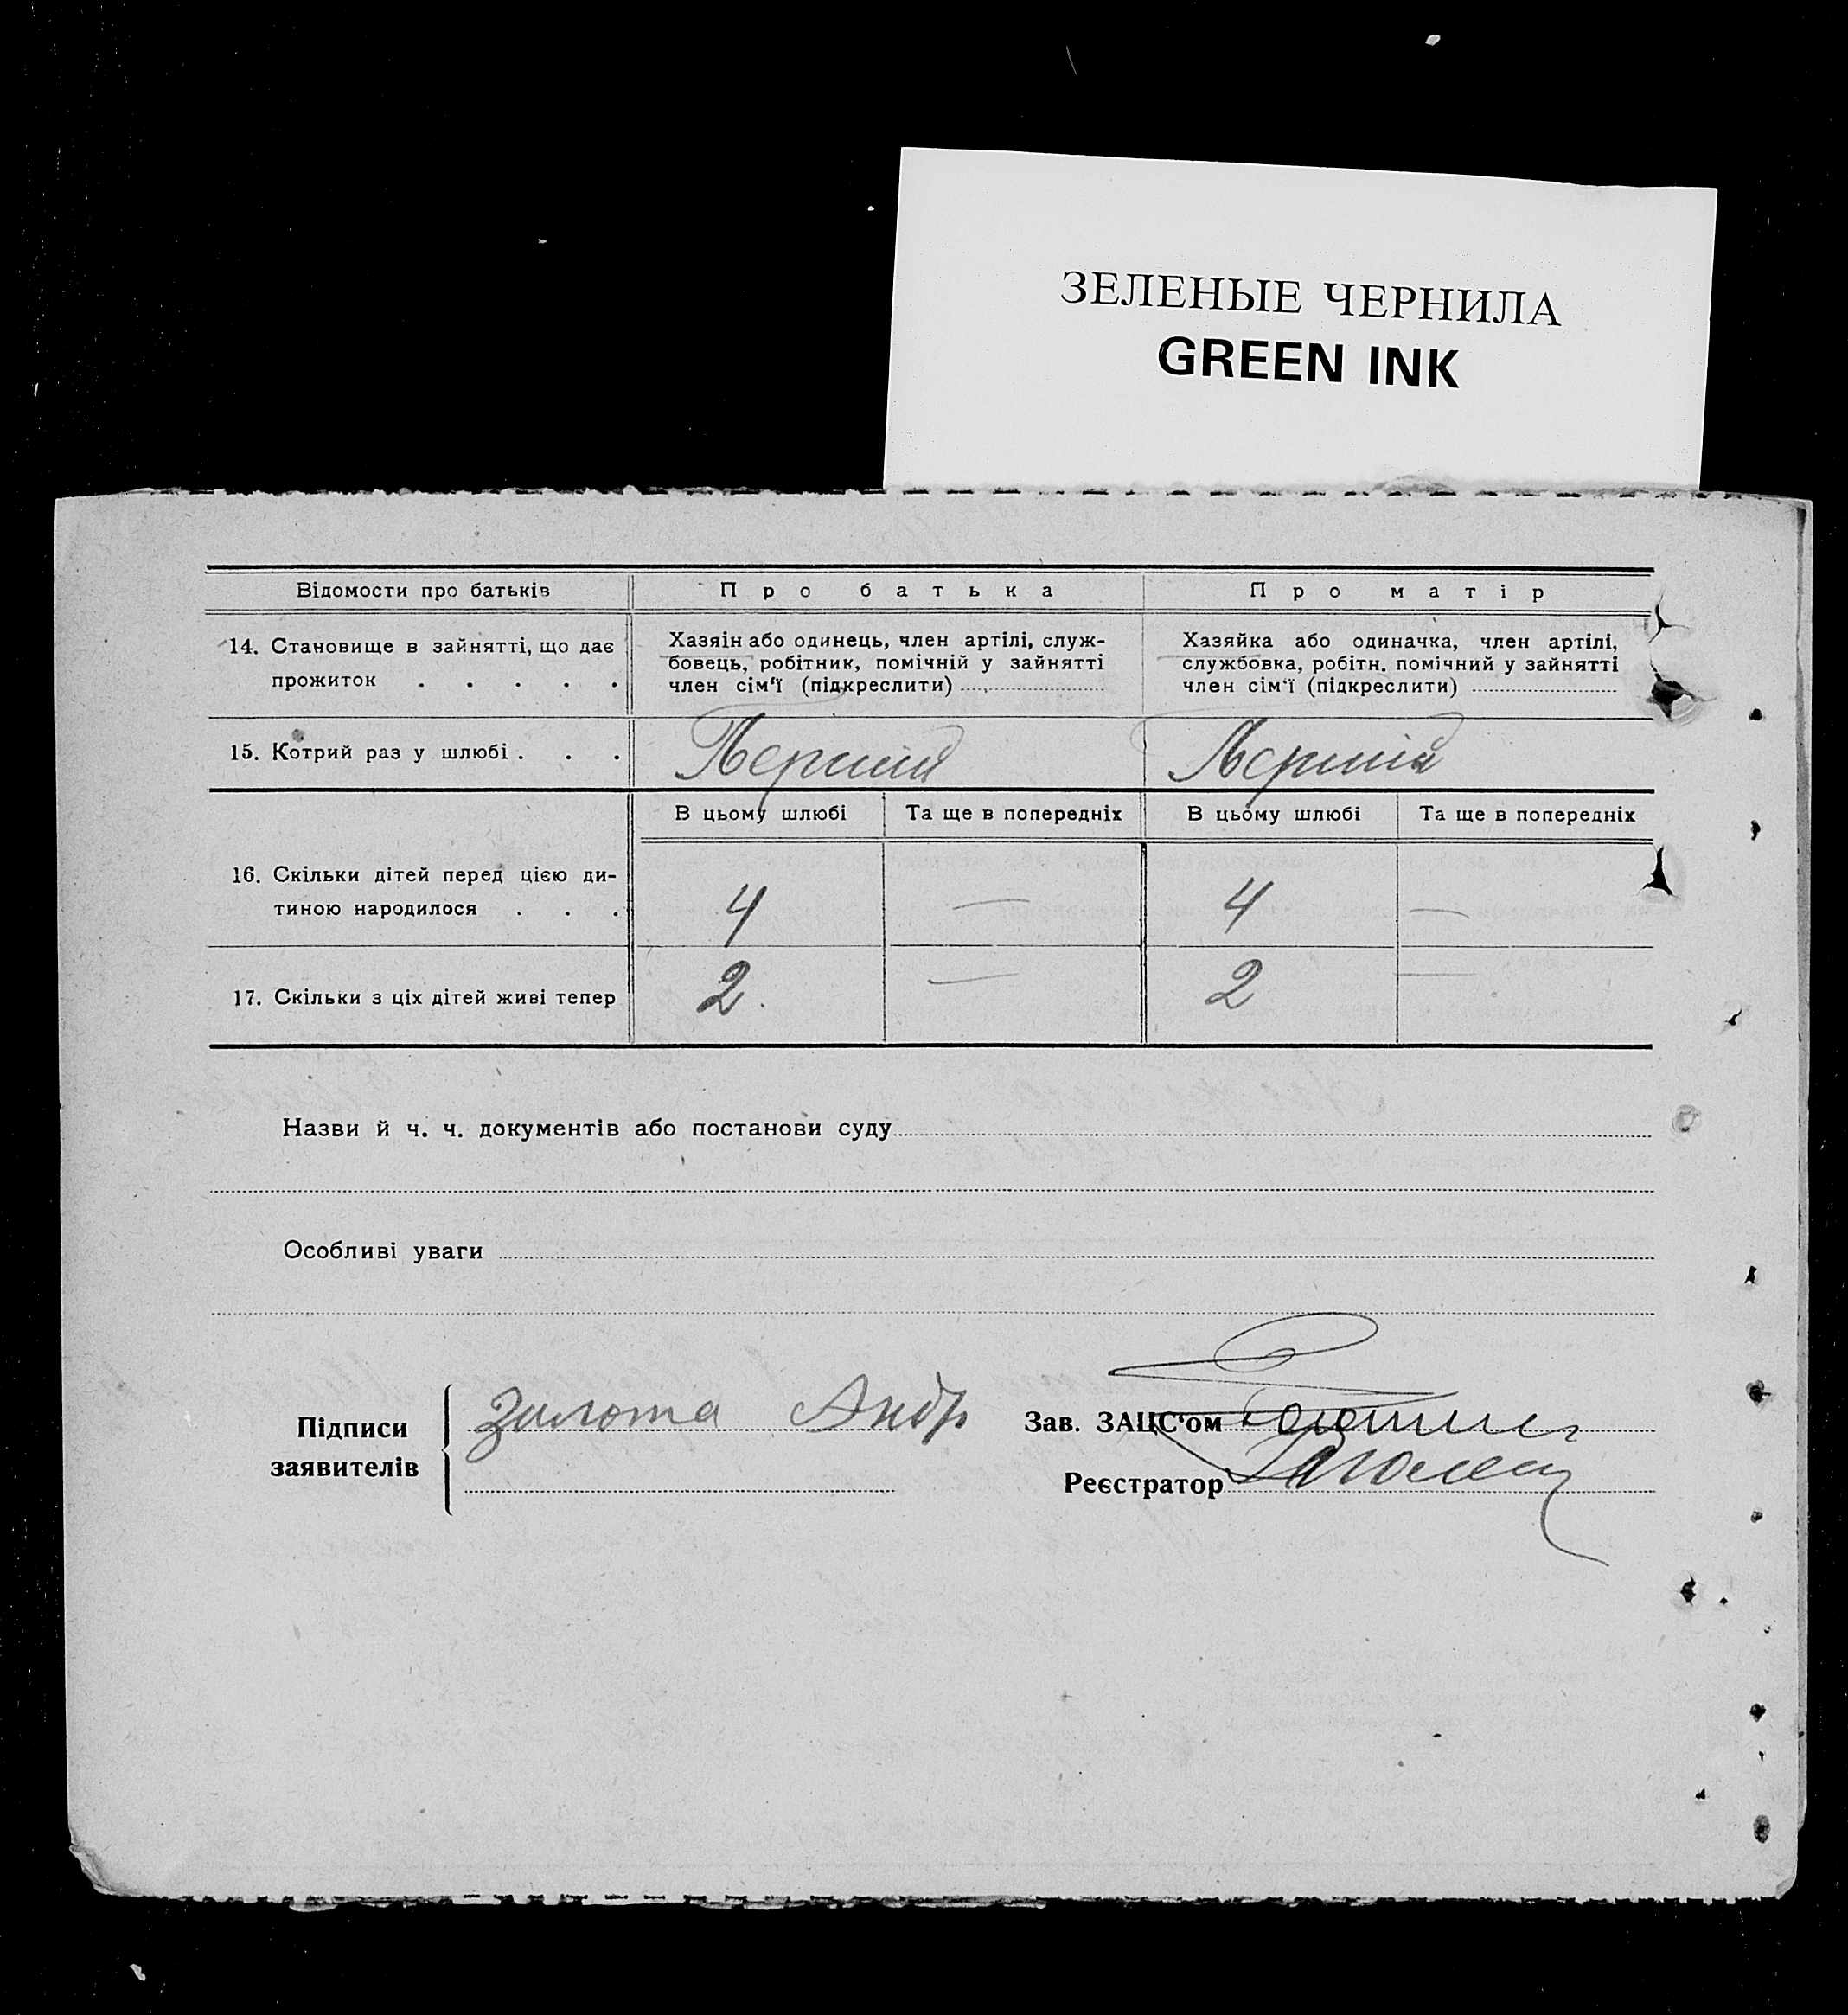 ЗЕЛЕНЫЕ ЧЕРНИЛА
GREEN INK
Відомости про батьків Про батька Про матір
14. Становище в зайнятті, що дає
прожиток . . . . .
Хазяін або одинець, член артілі, служ-
бовець, робітник, помічній у зайнятті
член сім‘ї (підкреслити)
Хазяйка або одиначка, член артілі,
службовка, робітн. помічний у зайнятті
член сім‘ї (підкреслити)
15. Котрий раз у шлюбі . . . Перший Перший
В цьому шлюбі Та ще в попередніх В цьому шлюбі Та ще в попередніх
16. Скільки дітей перед цією ди-
тиною народилося . . . 4 — 4 —
17. Скільки з ціх дітей живі тепер 2. — 2 —
Назви й ч. ч. документів або постанови суду
Особливі уваги
Підписи
заявителів
Золота Андр
Зав. ЗАЦС‘ом
Реєстратор